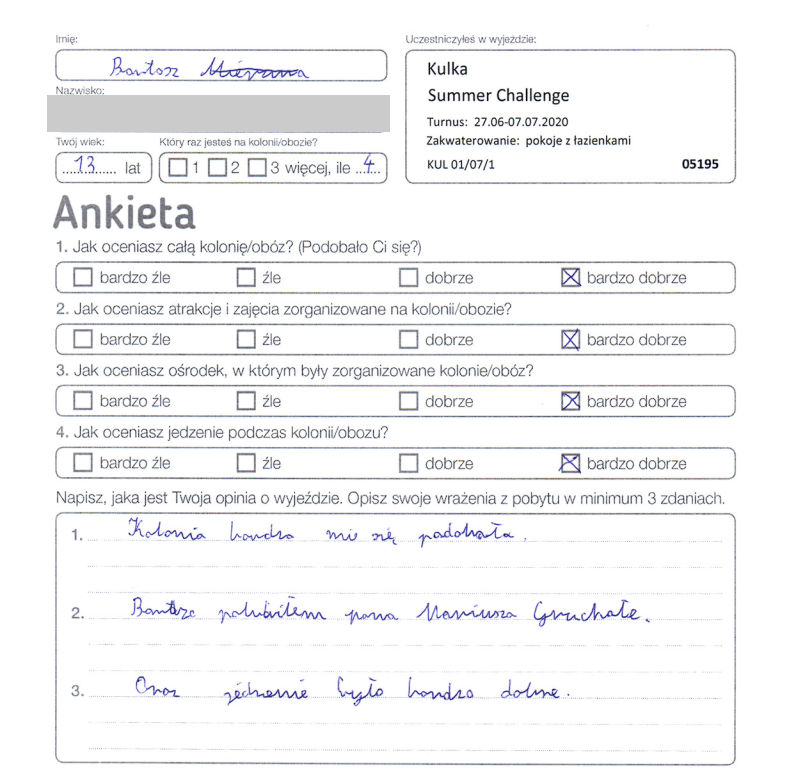 Imię:
Bartosz
Uczestniczyłeś w wyjeździe:
Kulka
Summer Challenge
Turnus: 27.06-07.07.2020
Zakwaterowanie: pokoje z łazienkami
KUL 01/07/1 05195
Nazwisko:
Twój wiek:
13 lat
Który raz jesteś na kolonii/obozie?
1 2 3 więcej, ile 4
Ankieta
1. Jak oceniasz całą kolonię/obóz? (Podobało Ci się?)
bardzo źle źle dobrze bardzo dobrze
2. Jak oceniasz atrakcje i zajęcia zorganizowane na kolonii/obozie?
bardzo źle źle dobrze bardzo dobrze
3. Jak oceniasz ośrodek, w którym były zorganizowane kolonie/obóz?
bardzo źle źle dobrze bardzo dobrze
4. Jak oceniasz jedzenie podczas kolonii/obozu?
bardzo źle źle dobrze bardzo dobrze
Napisz, jaka jest Twoja opinia o wyjeździe. Opisz swoje wrażenia z pobytu w minimum 3 zdaniach.
1. Kolonia bardzo mi się podobała.
2. Bardzo polubiłem pana Mariusza Gruchałe.
3. Oraz jedzenie było bardzo dobre.